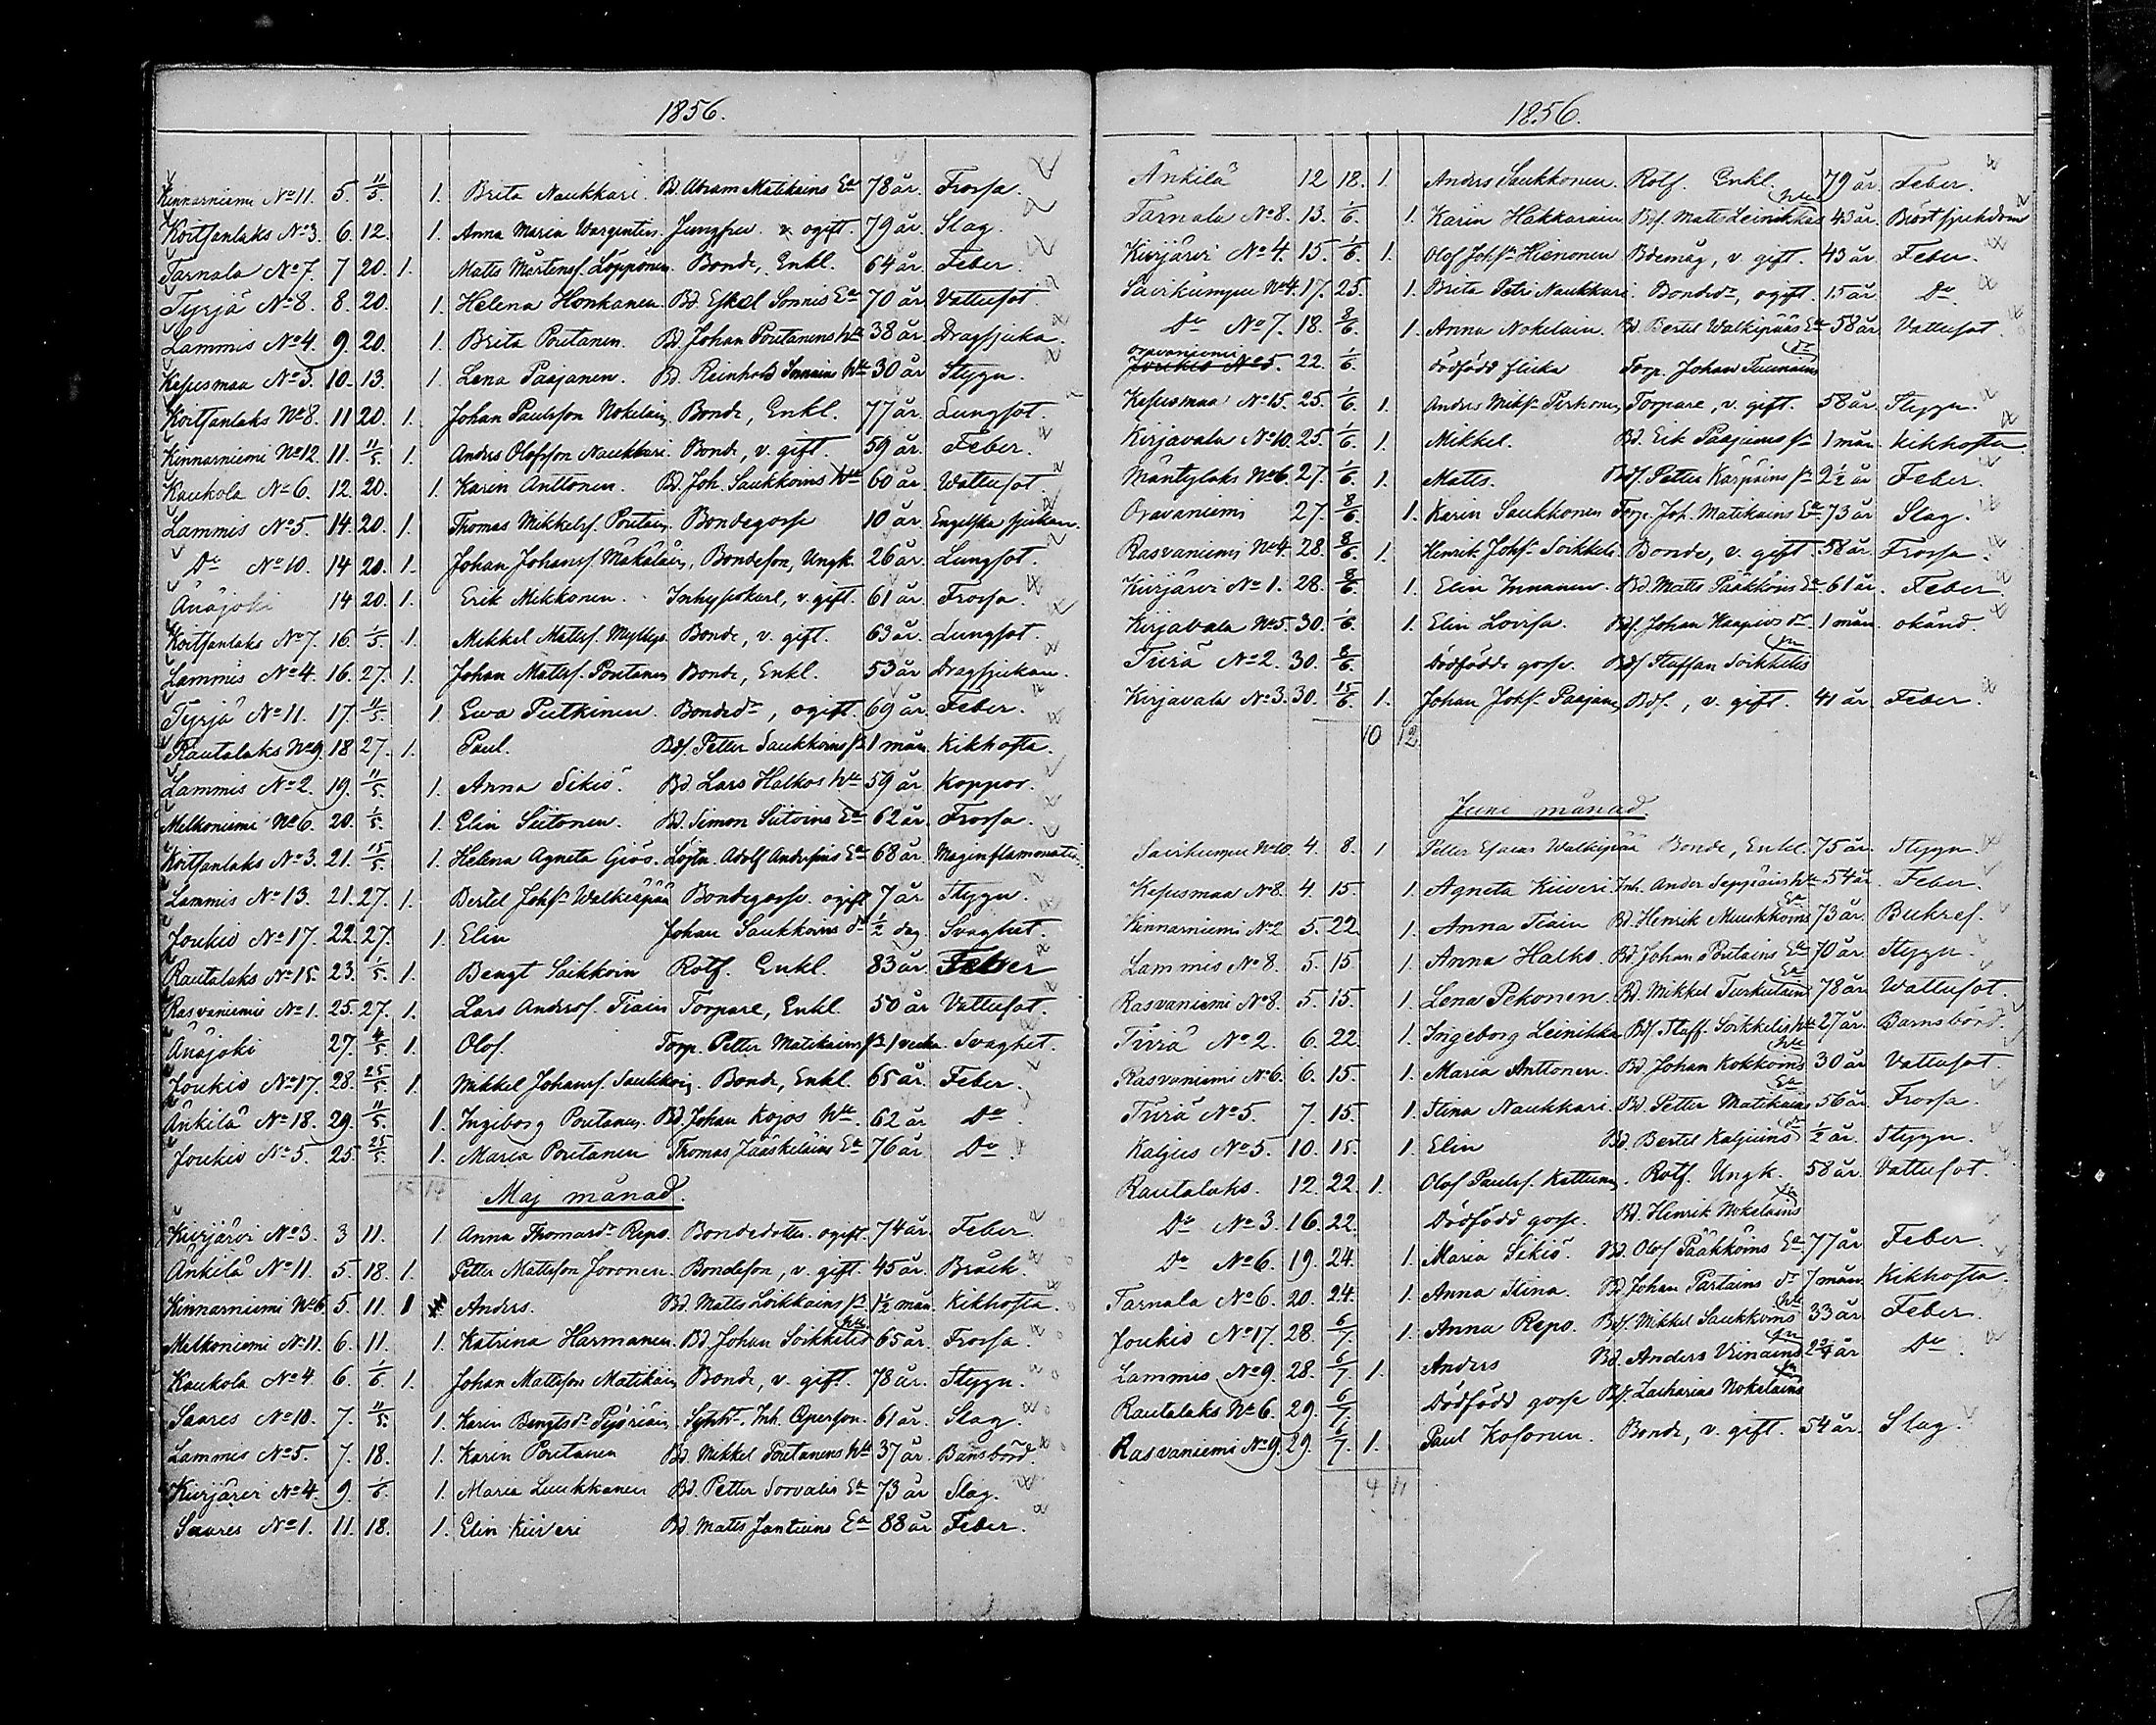 1856.
Kinnarniemi No 11. 5. 11/5. 1. Brita Naukkari. Bd. Abram Matikains Ea 78 år. Frossa.
Koitsanlaks No 3. 6. 12. 1. Anna Maria Wargentin. Jungfru ogift. 79 år. Slag.
Tarnala No 7. 7 20. 1. Matts Mårtenss. Löppönen. Bonde, Enkl. 64 år. Feber.
Tyrjä No 8. 8. 20. 1. Helena Honkanen. Bd. Eskel Sonnis Ea 70 år Vattusot
Lammis No 4. 9. 20. 1. Brita Poutanen. Bd. Johan Poutanens hu 38 år. Dragsjuka.
Kesusmaa No 3. 10. 13. 1. Lena Paajanen. Bd. Reinhold hu 30 år Stygn.
Koitsanlaks No 8. 11 20. 1. Johan Paulsson Nokelain Bonde, Enkl. 77 år. Lungsot.
Kinnarniemi No 12. 11. 11/5. 1. Anders Olofsson Naukkari. Bonde, v. gift. 59 år. Feber.
Kaukola No 6. 12. 20. 1. Karin Anttonen. Bd. Joh. Saukkoins hu 60 år Wattusot
Lammis No 5. 14. 20. 1. Thomas Mikkelss. Poutain. Bondegosse 10 år. Engelska sjukan.
Do No 10. 14 20. 1. Johan Johanss. Mäkäläin, Bondeson, Ungk. 26 år. Lungsot.
Änäjoki 14 20. 1. Erik Mikkonen. Inhyseskarl, v. gift. 61 år. Frossa.
Koitsanlaks No 7. 16 1/5. 1. Mikkel Mattss. Myllys. Bonde, v. gift. 63 år. Lungsot.
Lammis No 4. 16. 27. 1. Johan Mattss. Poutanen Bonde, Enkl. 53 år Dragsjukan.
Tyrjä No 11. 17. 11/5. 1. Ewa Putkinen. Bondedr, ogift. 69 år. Feber.
Rautalaks No 9. 18 27. 1. Paul. Bds. Petter Saukkoins sn 1 mån. Kikhosta.
Lammis No 2. 19. 11/5. 1. Anna Sikiö. Bd. Lars Halkos hu 59 år Koppor.
Melkoniemi No 6. 20. 1/5. 1. Elin Siitonen. Bd. Simon Siitoins Ea 62 år. Frossa.
Koitsanlaks No 3. 21. 15/5. 1. Helena Agneta Giös. Löjtn. Adolf Ea 68 år. Maginflamonation.
Lammis No 13. 21. 27. 1. Bertel Johss. Walkiapää Bondegosse ogift 7 år. Stygn.
Joukio No 17. 22. 27. 1. Elin Johan Saukkoins dr 1/2 dag. Svaghet.
Rautalaks No 15. 23. 1/5. 1. Bengt Saikkoin Rotf. Enkl. 83 år. Feber
Rasvaniemi No 1. 25. 27. 1. Lars Anderss. Tiain Torpare, Enkl. 50 år Vattusot.
Änäjoki 27. 4/5. 1. Olof. Torp. Petter Matikains sn 1 vecka. Svaghet.
Joukio No 17. 28. 25/5. 1. Mikkel Johanss. Saukkoin. Bonde, Enkl. 65 år. Feber.
Änkilä No 18. 29. 11/5. 1. Ingeborg Poutanen. Bd. Johan Kojos hu. 62 år Do
Joukio No 5. 25. 25/5. 1. Maria Poutanen Thomas Jääskeläins Ea 76 år Do.
15 14
Maj månad.
Kurjärvi No 3. 3 11. 1 Anna Thomasdr Repo. Bondedotter ogift. 74 år. Feber.
Änkilä No 11. 5 18. 1. Petter Mattsson Joronen. Bondeson, v. gift. 45 år. Bråck.
Kinnarniemi No 6. 5. 11. 1 Anders. Bd. Matts Loikkains sn 1 1/2 mån. Kikhosta.
Melkoniemi No 11. 6. 11. 1. Katrina Harmanen. Bd. Johan Soikkelis hu 65 år. Frossa.
Kaukola No 4. 6. 1/6. 1. Johan Mattsson Matikain Bonde, v. gift. 78 år. Stygn.
Saares No 10. 7. 11/5. 1. Karin Bengtsdr Inh. Qperson. 61 år. Slag.
Lammis No 5. 7. 18. 1. Karin Poutanen Bd. Mikkel Poutanens hu 37 år. Barnsbörd.
Kurjärvi No 4. 9. 1/6. 1. Maria Luukkanen Bd. Petter Sorvalis Ea 73 år Slag.
Saares No 1. 11. 18. 1. Elin Kiiveri Bd. Matts Jantuins Ea 88 år Feber.
1856.
Änkilä 12 18. 1. Anders Saukkonen. Rotf. Enkl. 79 år. Feber.
Tarnala No 8. 13. 1/6. 1. Karin Hakkarain Bds. Matts Leinikkas hu 43 år. Bröstsjukdom
Kurjärvi No 4. 15. 1/6. 1. Olof Johss. Hienonen Bdemåg, v. gift. 43 år. Feber.
Sairkumpu No 4. 17. 25. 1. Brita Petri Naukkari. Bondedr, ogift. 15 år Do
Do No 7. 18. 8/6. 1. Anna Nokelain. Bd. Bertel Walkipääs Ea 58 år Vattusot
Oravaniemi
Joukio No 5. 22. 1/6. dödfödd flicka Torp. Johan dr
Kesusmaa No 15. 25. 1/6. 1. Anders Mikss. Pirhonen Torpare, v. gift. 58 år. Stygn.
Kirjavala No 10. 25. 1/6. 1. Mikkel. Bd. Erik Paajains sn 1 mån. Kikhosta.
Mäntylaks No 6. 27. 1/6. 1. Matts. Bds. Petter Kärpäins sn 2 1/2 år Feber.
Oravaniemi 27. 8/6. 1. Karin Saukkonen Torp. Joh. Matikains Ea 73 år Slag.
Rasvaniemi No 4. 28. 8/6. 1. Henrik Johss. Soikkeli Bonde, v. gift 58 år. Frossa.
Kurjärvi No 1. 28. 8/6. 1. Elin Immonen. Bd. Matts Pääkköins Ea 61 år. Feber.
Kirjavala No 5. 30. 1/6. 1. Elin Lovisa. Bds. Johan Haapios dr 1 mån. okänd.
Tiurä No 2. 30. 8/6. Dödfödde gosse. Bds. Staffan Soikkelis sn
Kirjavala No 3. 30. 15/6. 1. Johan Johss. Paajanen Bds., v. gift. 41 år. Feber.
10 12.
Juni månad.
Sairkumpu No 10. 4. 8. 1 Petter Esaias Walkipää Bonde, Enkl. 75 år. Stygn.
Kesusmaa No 8. 4. 15. 1. Agneta Kiiveri. Inh. Anders Seppäins hu 54 år. Feber.
Kinnarniemi No 2 5. 22 1. Anna Tiain Bd. Henrik Muukkoins Ea 73 år. Bukref.
Lammis No 8. 5. 15 1. Anna Halko. Bd. Johan Poutains Ea 70 år. Stygn.
Rasvaniemi No 8. 5. 15. 1. Lena Pekonen. Bd. Mikkel Turkulains Ea 78 år Wattusot.
Tiurä No 2. 6. 22. 1. Ingeborg Leinikka Bds. Staff. Soikkelis hu 27 år. Barnsbörd.
Rasvaniemi No 6. 6. 15. 1. Maria Anttonen. Bd. Johan Kokkoins hu 30 år Vattusot.
Tiurä No 5. 7. 15. 1. Stina Naukkari. Bd. Petter Matikains Ea 56 år. Frossa.
Kaljus No 5. 10. 15. 1. Elin Bd. Bertel Kaljuins dr 1/2 år. Stygn.
Rautalaks. 12. 22. 1. Olof Paulss. Kettunen. Rotf. Ungk. 58 år. Vattusot.
Do No 3. 16. 22. Dödfödd gosse. Bd. Henrik Nokelains sn
Do No 6. 19. 24. 1. Maria Sikiö. Bd. Olof Pääkköins Ea 77 år Feber.
Tarnala No 6. 20. 24. 1. Anna Stina. Bd. Johan Partains dr 7 mån. Kikhosta.
Joukio No 17. 28. 6/7. 1. Anna Repo. Bds. Mikkel Saukkoins hu 33 år Feber.
Lammis No 9. 28. 6/7. 1. Anders Bd. Anders sn 2 3/4 år Do.
Rautalaks No 6. 29. 6/7. Dödfödd gosse Bds. Zacharias Nokelains sn
Rasvaniemi No 9. 29. 6/7. 1. Paul Kosonen. Bonde, v. gift. 54 år. Slag.
4 11